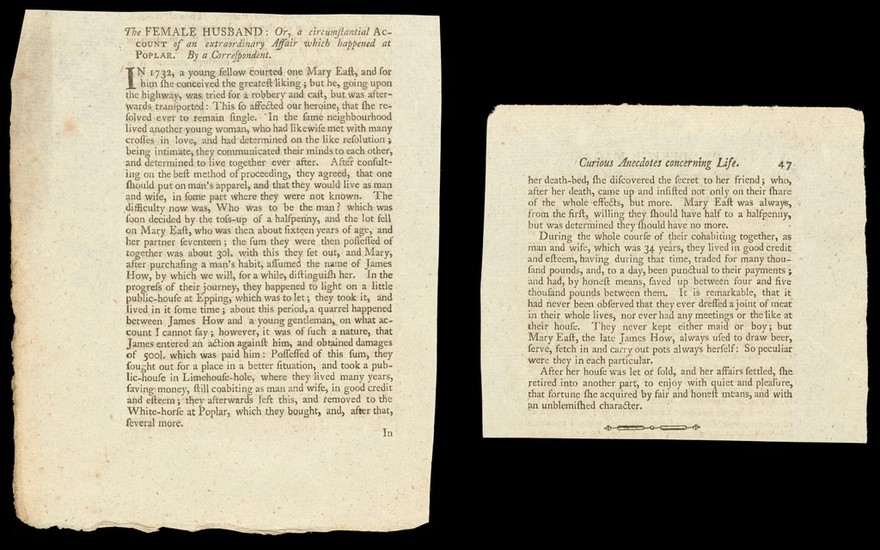 The FEMALE HUSBAND: Or, a circumſtantial AC-
COUNT of an extraordinary Affair which happened at
POPLAR. By a Correſpondent.
IN 1732, a young fellow courted one Mary Eaſt, and for
him ſhe conceived the greateſt liking; but he, going upon
the highway, was tried for a robbery and caſt, but was after-
wards tranſported: This ſo affected our heroine, that ſhe re-
ſolved ever to remain ſingle. In the ſame neighbourhood
lived another young woman, who had likewiſe met with many
croſſes in love, and had determined on the like reſolution;
being intimate, they communicated their minds to each other,
and determined to live together ever after. After conſult-
ing on the beſt method of proceeding, they agreed, that one
ſhould put on man's apparel, and that they would live as man
and wife, in ſome part where they were not known. The
difficulty now was, Who was to be the man? which was
ſoon decided by the toſs-up of a halfpenny, and the lot fell
on Mary Eaſt, who was then about ſixteen years of age, and
her partner ſeventeen; the ſum they were then poſſeſſed of
together was about 30l. with this they ſet out, and Mary,
after purchaſing a man's habit, aſſumed the name of James
How, by which we will, for a while, diſtinguiſh her. In the
progreſs of their journey, they happened to light on a little
public-houſe at Epping, which was to let; they took it, and
lived in it ſome time; about this period, a quarrel happened
between James How and a young gentleman, on what ac-
count I cannot ſay; however, it was of ſuch a nature, that
James entered an action againſt him, and obtained damages
of 500l. which was paid him: Poſſeſſed of this ſum, they
ſought out for a place in a better ſituation, and took a pub-
lic-houſe in Limehouſe-hole, where they lived many years,
ſaving money, ſtill coabiting as man and wife, in good credit
and eſteem; they afterwards left this, and removed to the
White-horſe at Poplar, which they bought, and, after that,
ſeveral more.
In
Curious Anecdotes concerning Life. 47
her death-bed, ſhe diſcovered the ſecret to her friend; who,
after her death, came up and inſiſted not only on their ſhare
of the whole effects, but more. Mary Eaſt was always,
from the firſt, willing they ſhould have half to a halfpenny,
but was determined they ſhould have no more.
During the whole courſe of their cohabiting together, as
man and wife, which was 34 years, they lived in good credit
and eſteem, having during that time, traded for many thou-
ſand pounds, and, to a day, been punctual to their payments;
and had, by honeſt means, ſaved up between four and five
thouſand pounds between them. It is remarkable, that it
had never been obſerved that they ever dreſſed a joint of meat
in their whole lives, nor ever had any meetings or the like at
their houſe. They never kept either maid or boy; but
Mary Eaſt, the late James How, always uſed to draw beer,
ſerve, fetch in and carry out pots always herſelf: So peculiar
were they in each particular.
After her houſe was let or ſold, and her affairs ſettled, ſhe
retired into another part, to enjoy with quiet and pleaſure,
that fortune ſhe acquired by fair and honeſt means, and with
an unblemiſhed character.